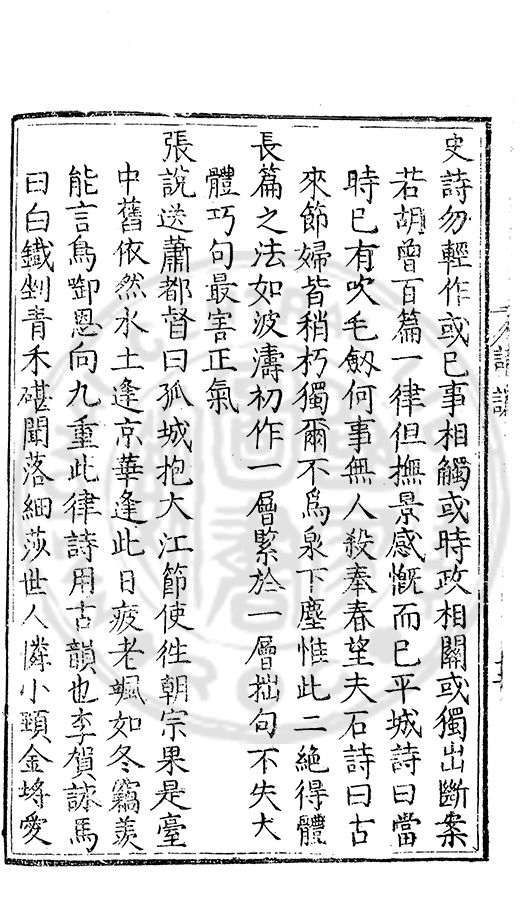 史詩勿輕作或已事相觸或時政相關或獨出斷案
若胡曾百篇一律但撫景感慨而已平城詩曰當
時已有吹毛劒何事無人殺奉春望夫石詩曰古
來節婦皆稍朽獨爾不爲泉下塵惟此二絶得體
長篇之法如波濤初作一層緊於一層拙句不失大
體巧句最害正氣
張說送蕭都督曰孤城抱大江節使徃朝宗果是臺
中舊依然水土逢京華逢此日疲老颯如冬竊羨
能言鳥啣恩向九重此律詩用古韻也李賀詠馬
曰白鐵剉青禾碪聞落細莎世人憐小頸金埒愛